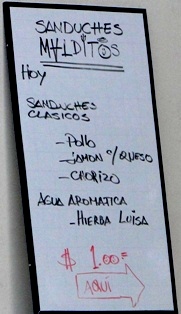 SANDUCHES
MALDITOS
HOY
SANDUCHES
CLASICOS
- Pollo
- JAMON c/ QUESO
- CHORIZO
AGUA AROMATICA
- HIERBA LUISA
$ 1.00=
AQUÍ